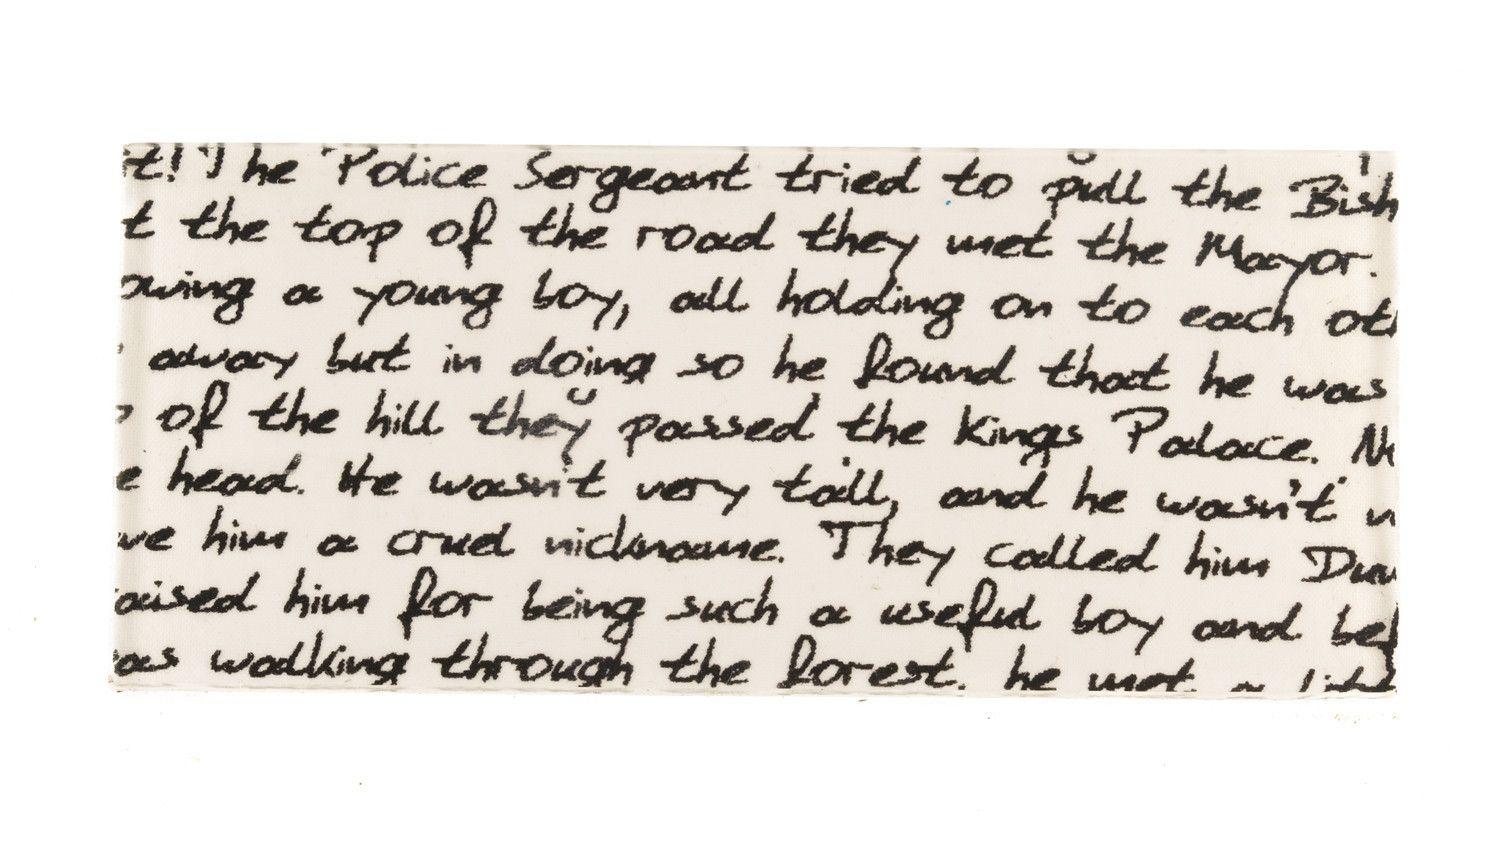 t! The Police Sergeant tried to pull the Bish
t the top of the road they met the Mayor.
owing a young boy, all holding on to each oth
away but in doing so he found that he was
of the hill they passed the Kings Palace. N
e head. He wasn't very tall, and he wasn't
ve him a cruel nickname. They called him Dum
aised him for being such a useful boy and bef
as walking through the forest, he met a